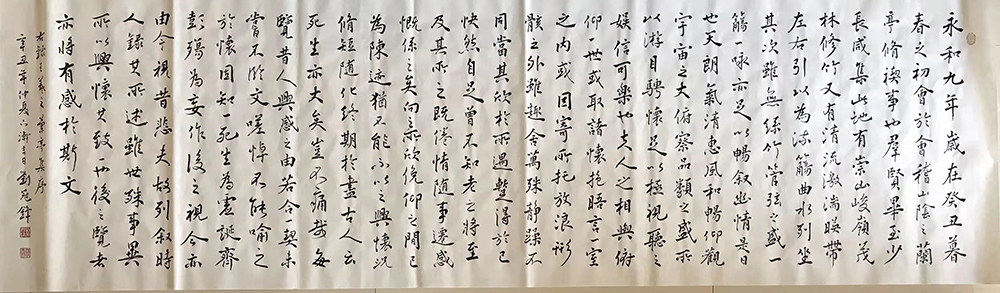 永和九年歲在癸丑暮
春之初會於會稽山陰之蘭
亭脩禊事也羣賢畢至少
長咸集此地有崇山峻嶺茂
林修竹又有清流激湍映帶
左右引以為流觴曲水列坐
其次雖無絲竹管弦之盛一
觴一咏亦足以暢叙幽情是日
也天朗氣清惠風和暢仰觀
宇宙之大俯察品類之盛所
以游目騁懷足以極視聽之
娛信可樂也夫人之相與俯
仰一世或取諸懷抱晤言一室
之内或因寄所托放浪形
骸之外雖趣舍萬殊静躁不
同當其欣於所遇暫得於己
快然自足曾不知老之將至
及其所之既倦情隨事遷感
慨係之矣向之所欣俛仰之閒已
為陳迹猶不能不以之興懷況
脩短隨化終期於盡古人云
死生亦大矣豈不痛哉每
覽昔人興感之由若合一契未
嘗不臨文嗟悼不能喻之
於懷固知一死生為虛誕齊
彭殤為妄作後之視今亦
由今視昔悲夫故列叙時
人錄其所述雖世殊事異
所以興懷其致一也後之覽者
亦將有感於斯文
右錄王羲之蘭亭集序
辛丑年仲夏 劉